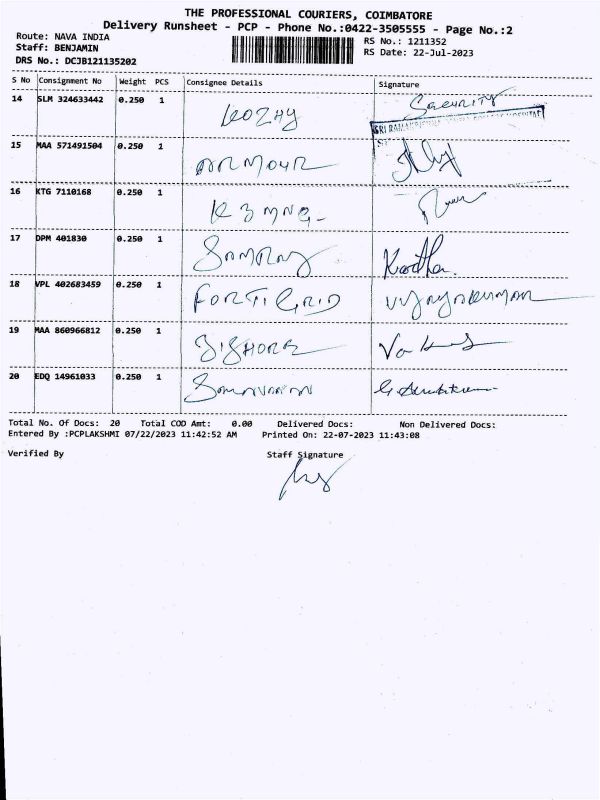 THE PROFESSIONAL COURIERS, COIMBATORE
Delivery Runsheet - PCP - Phone No.:0422-3505555 - Page No.:2
Route: NAVA INDIA
RS No.: 1211352
Staff: BENJAMIN
RS Date: 22-Jul-2023
DRS No.: DCJB121135202
S No Consignment No Weight PCS Consignee Details Signature
14 SLM 324633442 0.250 1 Security
15 MAA 571491504 0.250 1 ARMOUR
16 KTG 7110168 0.250 1
17 DPM 401830 0.250 1
18 VPL 402683459 0.250 1 FORTIGRID VIJAYAKUMAR
19 MAA 860966812 0.250 1
20 EDQ 14961033 0.250 1
Total No. Of Docs: 20 Total COD Amt: 0.00 Delivered Docs: Non Delivered Docs:
Entered By :PCPLAKSHMI 07/22/2023 11:42:52 AM Printed On: 22-07-2023 11:43:08
Verified By Staff Signature